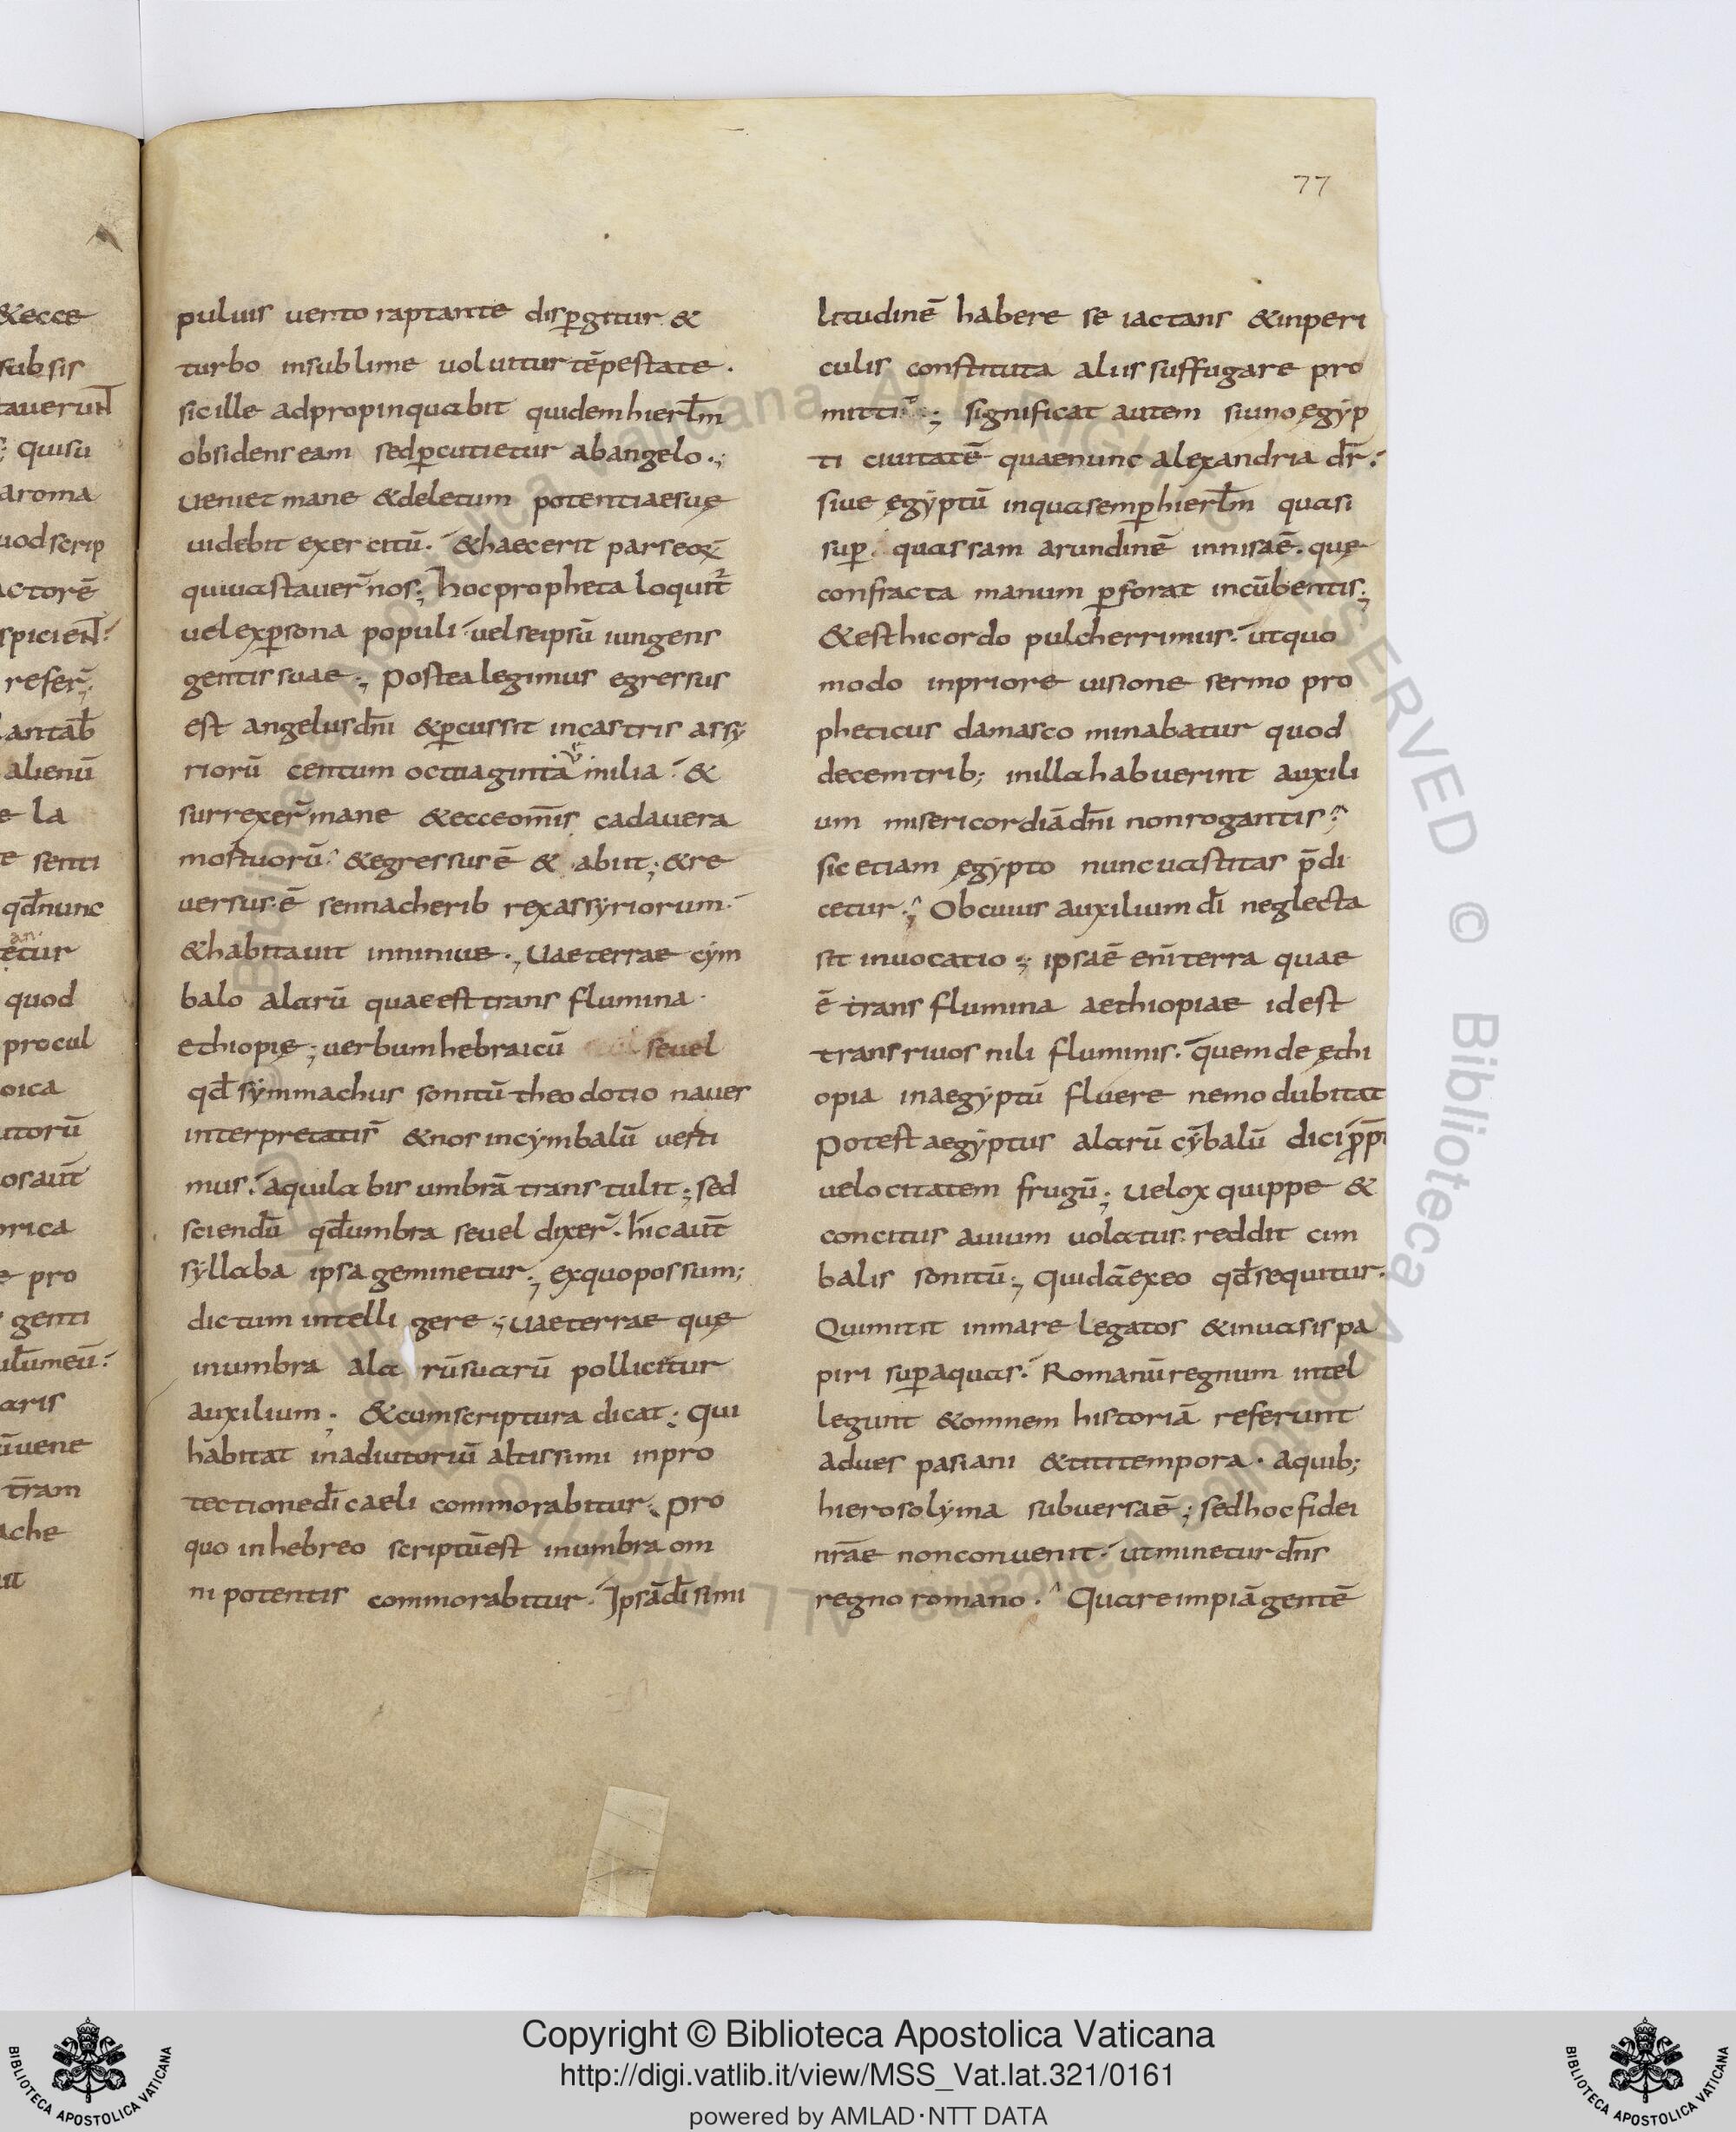 77
&ecce
subsis
tauerunt
quisu
aroma
uod scrip
actorē
spicient
refer̄
lantab̄
alienū
e la
e senti
qd̄nunc
an
tetur
quod
procul
oica
utorū
osaūt
orica
e pro
genti
ul̄meū
aris
ūuene
tr̄am
ache
puluis uento raptante disp̲gitur &
turbo insublime uoluitur tēpestate.
sicille adpropinquabit quidem hierl̄m
obsidens eam sedp̲cutietur abangelo.;
ueniet mane &deletum potentiaesuę
uidebit exercitū. &haecerit parseoꝝ
quiuastauer̄ nos; hocpropheta loquit̄
uelexp̲sona populi uelseipsū iungens
gentissuae.; postea legimus egressus
est angelusdn̄i &p̲cussit incastris assy
riorū centum octuaginta v̊ milia &
surrexer̄ mane &ecceom̄is cadauera
mortuorū &egressusē & abiit; &re
uersus ē sennacherib rexassyriorum
&habitauit inniniue.; Uaeterrae cym
balo alarū quaeest trans flumina
ethiopię; uerbum hebraicū seuel
qd̄ symmachus sonitū theodotio naues
interpretatis̄ &nos incymbalū uerti
mus. aquila bis umbrā transtulit; sed
sciendū qd̄umbra seuel dixer̄. hicaūt
syllaba ipsa geminetur; exquopossum;
dictum intelligere.; uaeterrae quę
inumbra alarūsuarū pollicitur
auxilium. &cumscriptura dicat; qui
habitat inadiutoriū altissimi inpro
tectionedī caeli commorabitur. pro
quo inhebreo scriptūest inumbra om
nipotentis commorabitur. Ipsādī simi
litudinē habere se iactans &inperi
culis constituta aliis suffugare pro
mitti; significat autem siuno ęgyp
ti ciuitatē quaenunc alexandria dr̄.
siue ęgyptū inquasemp̲hierl̄m quasi
sup̲ quassam arundinē innisaē. quę
confracta manum p̲forat incūbentis;
&esthicordo pulcherrimus. utquo
modo inpriore uisione sermo pro
pheticus damasco minabatur quod
decemtrib; inillahabuerint auxili
um misericordiādn̄i nonrogantis
sicetiam ęgypto nuncuastitas p̄di
cetur. Obcuius auxiliumdī neglecta
sit inuocatio; ipsaē enī terra quae
ē trans flumina aethiopiae idest
transriuos nili fluminis. quemde ęthi
opia inaegyptū fluere nemo dubitat
potest aegyptus alarū cȳbalū dici p̲p̄
uelocitatem frugū; uelox quippe &
concitus auium uolatus reddit cim
balis sonitū; quidāexeo qd̄sequitur.
Quimitit inmare legatos &inuasis pa
piri sup̲aquas. Romanūregnum intel
legunt &omnem historiā referunt
aduespasiani &titi tempora. aquib;
hierosolyma subuersaē; sedhocfidei
nr̄ae nonconuenit. utminetur dn̄s
regno romano. Quareimpiāgentē
© Biblioteca Apostolica Vaticana ALL RIGHTS RESERVED
BIBLIOTECA APOSTOLICA VATICANA
Copyright © Biblioteca Apostolica Vaticana
http://digi.vatlib.it/view/MSS_Vat.lat.321/0161
powered by AMLAD·NTT DATA
BIBLIOTECA APOSTOLICA VATICANA